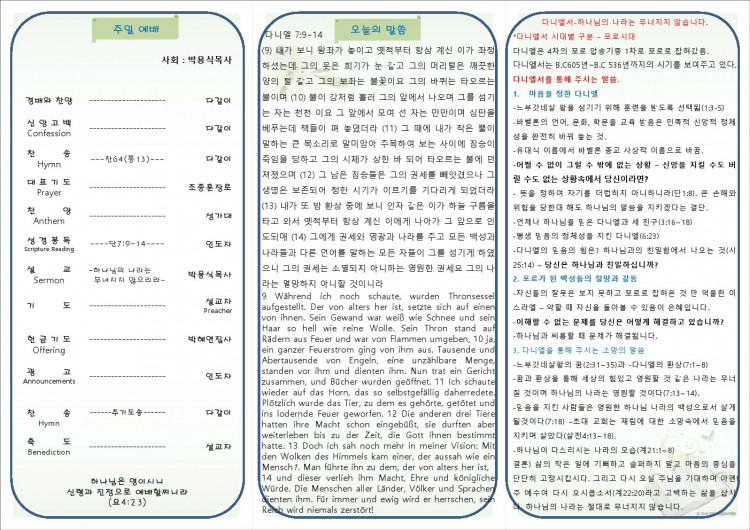 주일 예배
사회 : 박용식목사
경배와 찬양 ------------------ 다같이
신앙고백 ------------------ 다같이
Confession
찬 송 ---찬64(통13)--- 다같이
Hymn
대표기도 ------------------ 조종훈장로
Prayer
찬 양 ------------------ 성가대
Anthem
성경봉독 ----단7:9~14---- 인도자
Scripture Reading
설 교 -하나님의 나라는 박용식목사
Sermon 무너지지 않으리라-
기 도 ------------------ 설교자
Preacher
헌금기도 ------------------ 박혜연집사
Offering
광 고 ------------------ 인도자
Announcements
찬 송 ------주기도송------ 다같이
Hymn
축 도 ------------------ 설교자
Benediction
하나님은 영이시니
신령과 진정으로 예배할찌니라
(요4:23)
다니엘 7:9~14
오늘의 말씀
(9) 내가 보니 왕좌가 놓이고 옛적부터 항상 계신 이가 좌정
하셨는데 그의 옷은 희기가 눈 같고 그의 머리털은 깨끗한
양의 털 같고 그의 보좌는 불꽃이요 그의 바퀴는 타오르는
불이며 (10) 불이 강처럼 흘러 그의 앞에서 나오며 그를 섬기
는 자는 천천 이요 그 앞에서 모여 선 자는 만만이며 심판을
베푸는데 책들이 펴 놓였더라 (11) 그 때에 내가 작은 뿔이
말하는 큰 목소리로 말미암아 주목하여 보는 사이에 짐승이
죽임을 당하고 그의 시체가 상한 바 되어 타오르는 불에 던
져졌으며 (12) 그 남은 짐승들은 그의 권세를 빼앗겼으나 그
생명은 보존되어 정한 시기가 이르기를 기다리게 되었더라
(13) 내가 또 밤 환상 중에 보니 인자 같은 이가 하늘 구름을
타고 와서 옛적부터 항상 계신 이에게 나아가 그 앞으로 인
도되매 (14) 그에게 권세와 영광과 나라를 주고 모든 백성과
나라들과 다른 언어를 말하는 모든 자들이 그를 섬기게 하였
으니 그의 권세는 소멸되지 아니하는 영원한 권세요 그의 나
라는 멸망하지 아니할 것이니라
9 Während ich noch schaute, wurden Thronsessel
aufgestellt. Der von alters her ist, setzte sich auf einen
von ihnen. Sein Gewand war weiß wie Schnee und sein
Haar so hell wie reine Wolle. Sein Thron stand auf
Rädern aus Feuer und war von Flammen umgeben, 10 ja,
ein ganzer Feuerstrom ging von ihm aus. Tausende und
Abertausende von Engeln, eine unzählbare Menge,
standen vor ihm und dienten ihm. Nun trat ein Gericht
zusammen, und Bücher wurden geöffnet. 11 Ich schaute
wieder auf das Horn, das so selbstgefällig daherredete.
Plötzlich wurde das Tier, zu dem es gehörte, getötet und
ins lodernde Feuer geworfen. 12 Die anderen drei Tiere
hatten ihre Macht schon eingebüßt, sie durften aber
weiterleben bis zu der Zeit, die Gott ihnen bestimmt
hatte. 13 Doch ich sah noch mehr in meiner Vision: Mit
den Wolken des Himmels kam einer, der aussah wie ein
Mensch?. Man führte ihn zu dem, der von alters her ist,
14 und dieser verlieh ihm Macht, Ehre und königliche
Würde. Die Menschen aller Länder, Völker und Sprachen
dienten ihm. Für immer und ewig wird er herrschen, sein
Reich wird niemals zerstört!
다니엘서-하나님의 나라는 무너지지 않습니다.
*다니엘서 시대별 구분 – 포로시대
다니엘은 4차의 포로 압송기중 1차로 포로로 잡혀갔음.
다니엘서는 B.C605년~B.C 536년까지의 시기를 보여주고 있다.
다니엘서를 통해 주시는 말씀.
1. 마음을 정한 다니엘
-느부갓네살 왕을 섬기기 위해 훈련을 받도록 선택됨(1:3-5)
-바벨론의 언어, 문화, 학문을 교육 받음은 민족적 신앙적 정체
성을 완전히 바꿔 놓는 것.
-유대식 이름에서 바벨론 종교 사상적 이름으로 바꿈.
-어쩔 수 없이 그럴 수 밖에 없는 상황 – 신앙을 지킬 수도 버
릴 수도 없는 상황속에서 당신이라면?
- 뜻을 정하여 자기를 더럽히지 아니하니라(단1:8). 큰 손해와
위험을 당한대 해도 하나님의 말씀을 지키겠다는 결단.
-언제나 하나님을 믿은 다니엘과 세 친구(3:16~18)
-평생 믿음의 정체성을 지킨 다니엘(6:23)
-다니엘의 믿음의 힘은? 하나님과의 친밀함에서 나오는 것(시
25:14) – 당신은 하나님과 친밀하십니까?
2. 포로가 된 백성들의 절망과 갈등
-자신들의 잘못은 보지 못하고 포로로 잡혀온 것 만 억울한 이
스라엘 – 악할 때 자신을 돌아볼 수 있음이 은혜입니다.
-이해할 수 없는 문제를 당신은 어떻게 해결하고 있습니까?
-하나님과 씨름할 때 문제가 해결됩니다.
3. 다니엘을 통해 주시는 소망의 말씀
-느부갓네살왕의 꿈(2:31~35)과 -다니엘의 환상(7:1~8)
-꿈과 환상을 통해 세상의 힘있고 영원할 것 같은 나라는 무너
질 것이며 하나님의 나라는 영원할 것이다(7:13~14).
-믿음을 지킨 사람들은 영원한 하나님 나라의 백성으로서 살게
될것이다(7:18) –초대 교회는 재림에 대한 소망속에서 믿음을
지키며 살았다(살전4:13~18).
-하나님이 다스리시는 나라의 모습(계21:1~8)
결론) 삶의 작은 일에 기뻐하고 슬퍼하지 말고 마음의 중심을
단단히 고정시킵시다. 그리고 다시 오실 주님을 기대하며 아멘
주 예수여 다시 오시옵소서(계22:20)라고 고백하는 삶을 삽시
다. 하나님의 나라는 절대로 무너지지 않습니다.